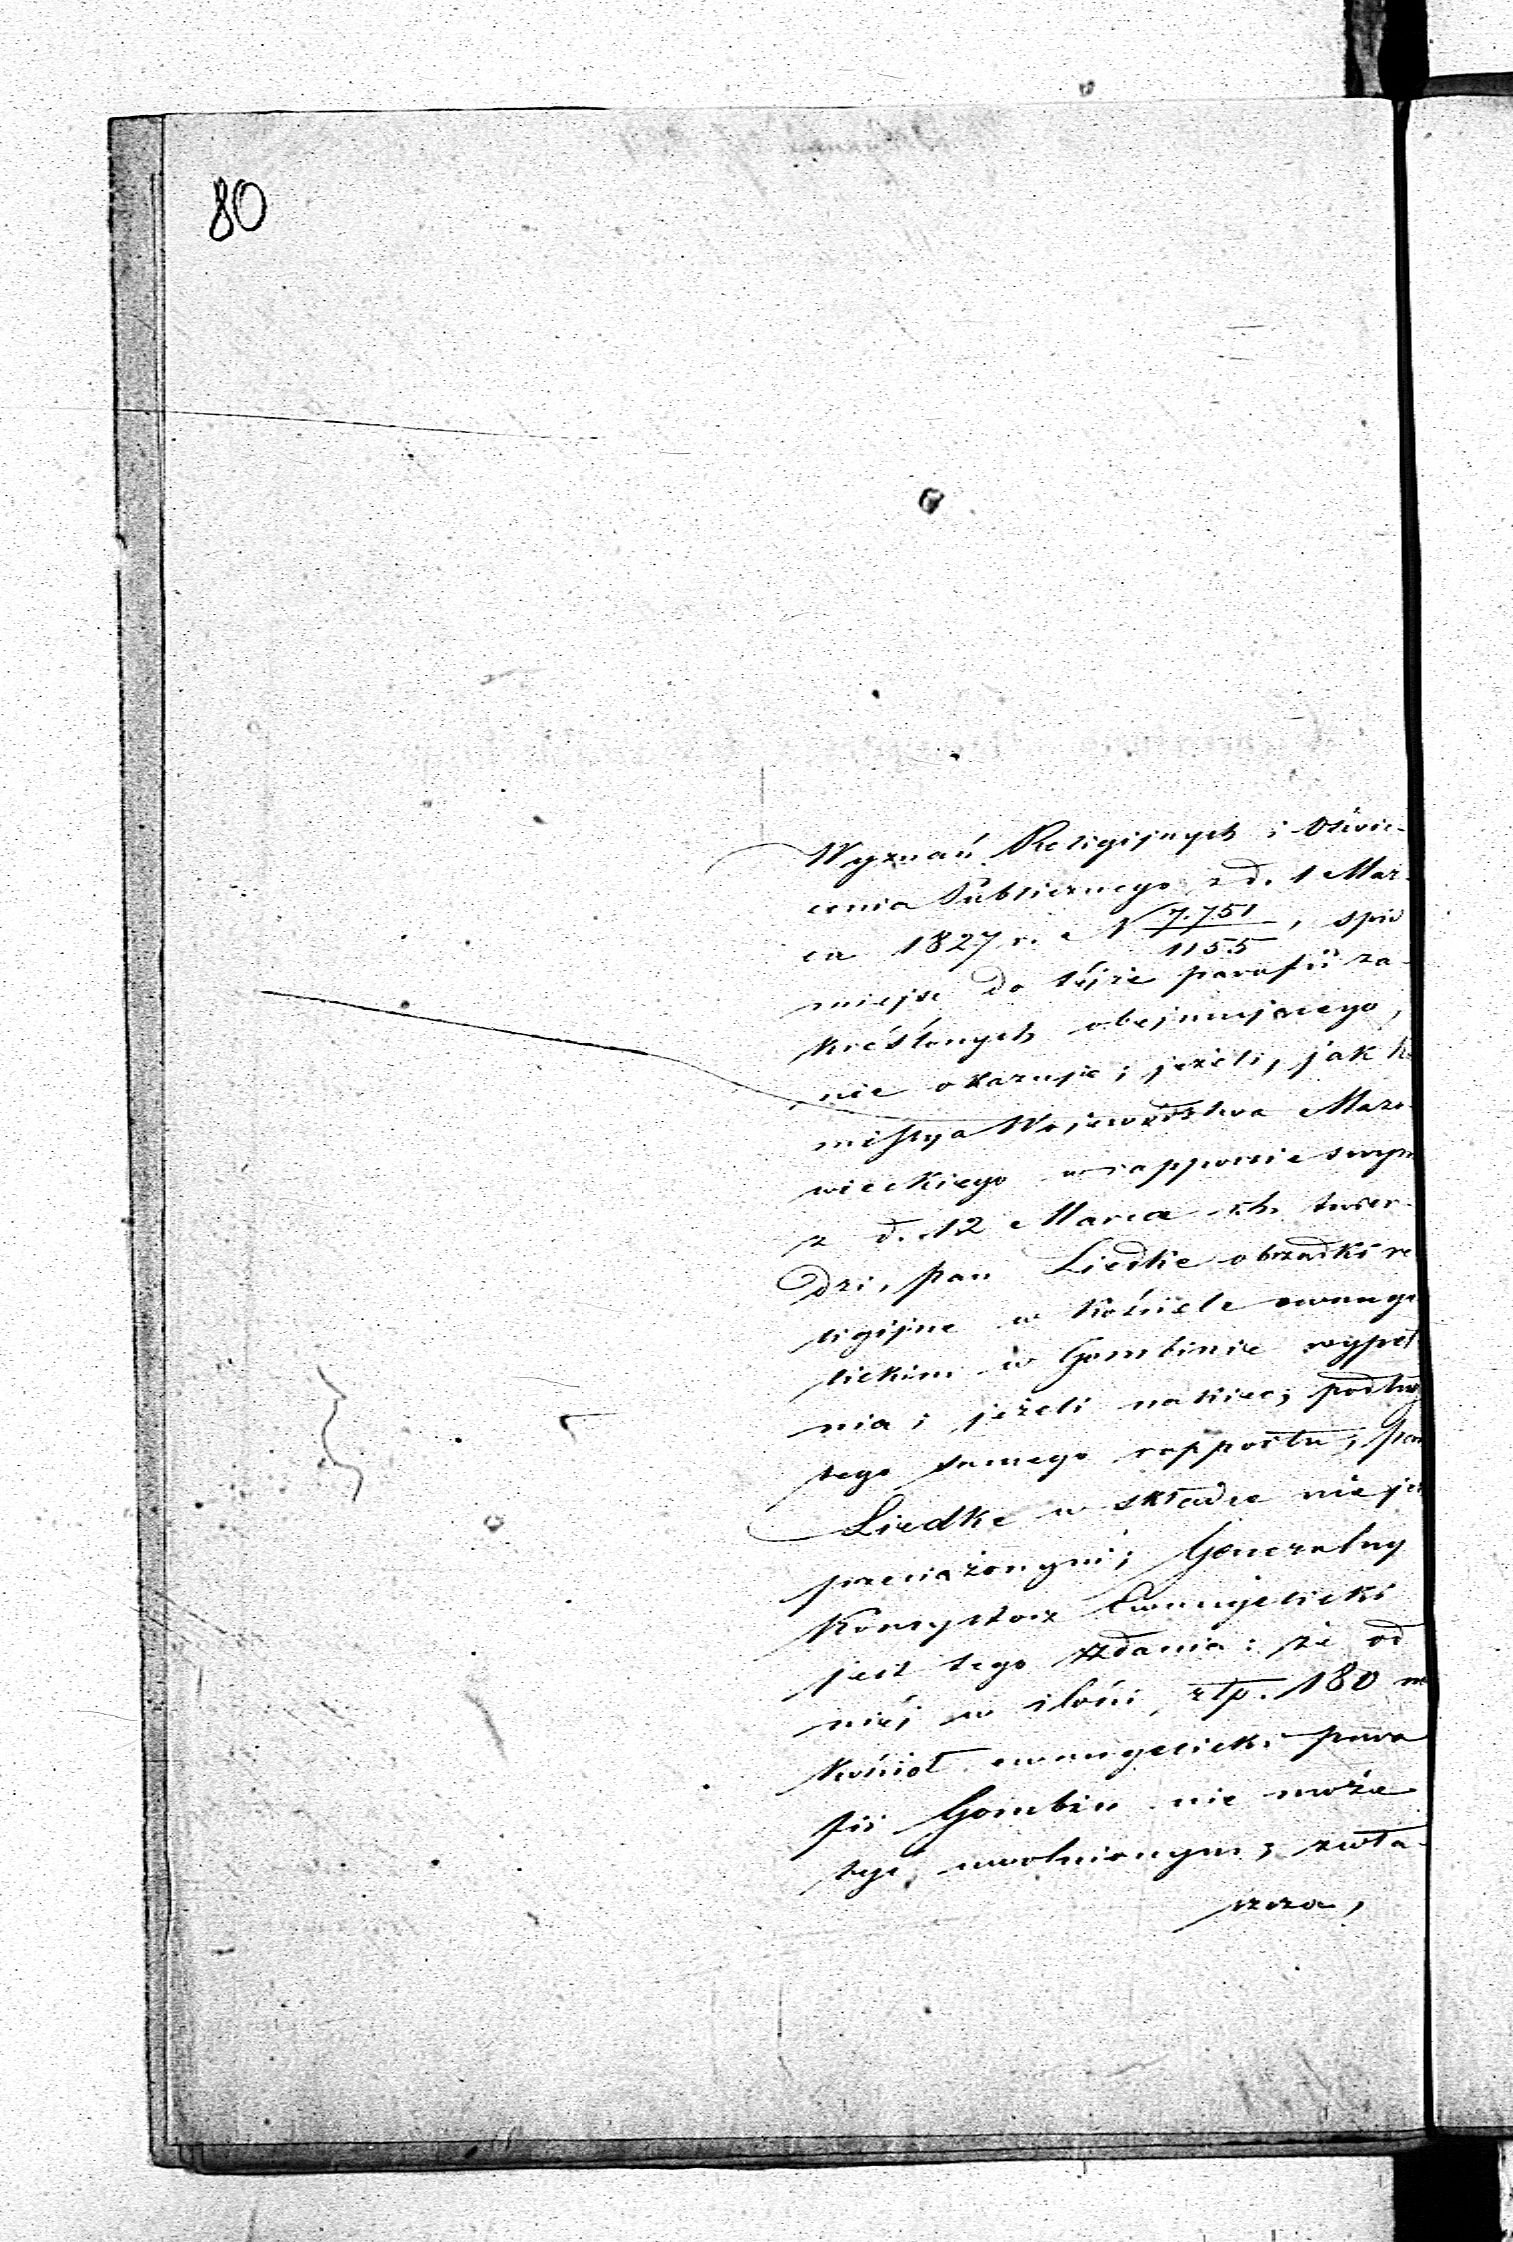 80
Wyznań Religijnych i Oświe-
cenia Publicznego z d. 1 Mar-
ca 1827 r. N 7.751/1155, spis
miejsc do tejże parafii za-
kréślonych obejmującego,
nie okazuje; jeżeli, jak Ko
missya Województwa Mazo-
wieckiego w rapporcie swym
z d. 12 Marca r.b. twier-
dzi, pan Liedke obrządki re
ligijne w kościele ewange
lickim w Gombinie wypeł-
nia; jeżeli nakiec, podług
tego samego rapportu, pan
Liedke w składce nie jes
przeciążonym; Generalny
Konsystorz Ewangelicki
jest tego zdania: że od
niéj w ilości złp. 180 na
kościoł ewangelicki para
fii Gombin nie może
być uwolnionym; zwła-
szcza,